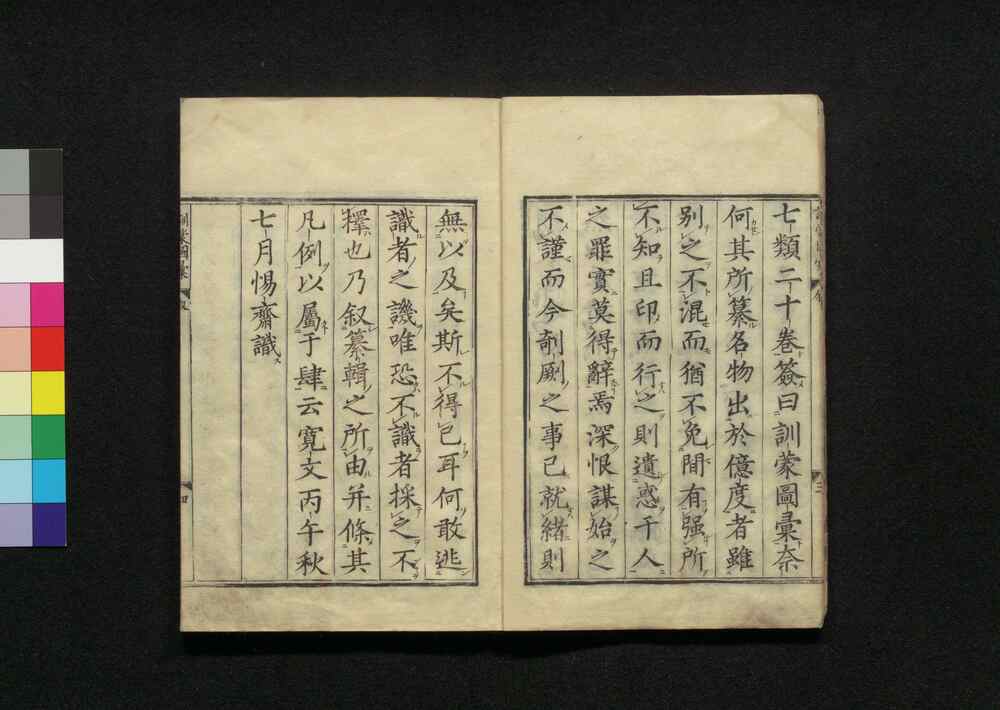 七類二十卷簽曰訓蒙圖彙奈
何其所纂名物出於億度者雖
別之不混而猶不免間有强所
不知且印而行之則遺惑于人
之罪實莫得辭焉深恨謀始之
不謹而今剞劂之事已就緒則
無以及矣斯不得已耳何敢逃
識者之譏唯恐不識者採之不
擇也乃叙纂輯之所由并條其
凡例以屬于肆云寛文丙午秋
七月惕齋識
四